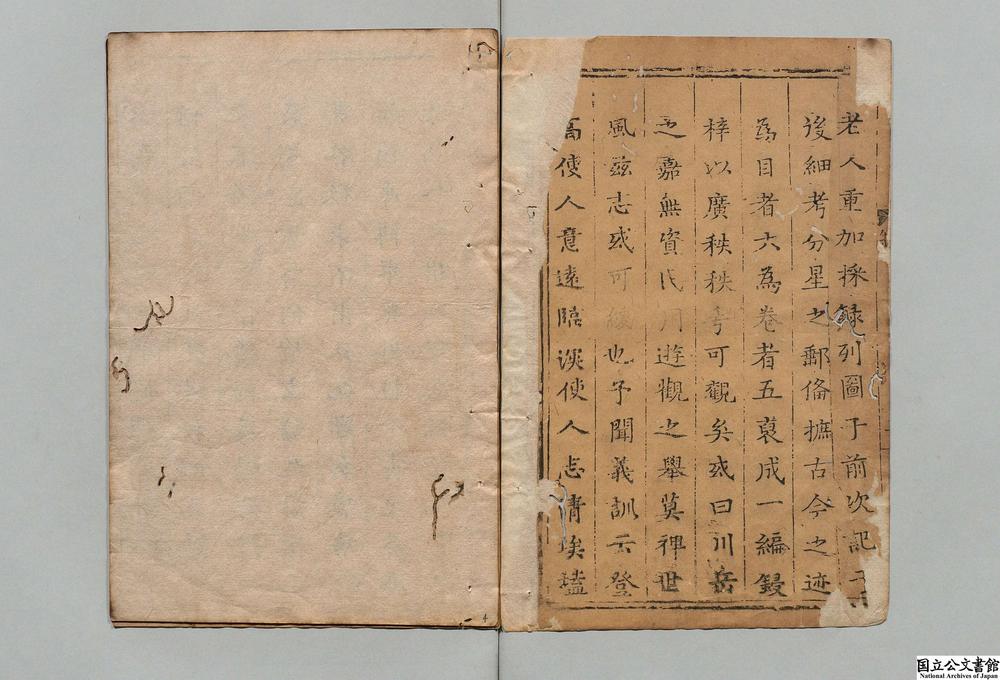 老人重加採録列圖于前次記于
後細考分星之郵俻摭古今之迹
為目者六為卷者五裒成一編鋟
梓以廣秩秩乎可觀矣或曰川岳
之嘉無資氏用遊觀之舉莫裨世
風兹志或可緩也予聞義訓云登
高使人意遠臨深使人志清埃壒
国立公文書館
National Archives of Japan